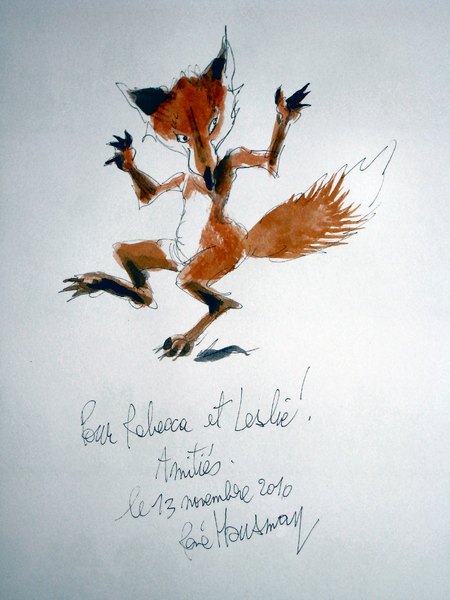 Pour Rebecca et Leslie!
Amitiés.
le 13 novembre 2010
René Hausman